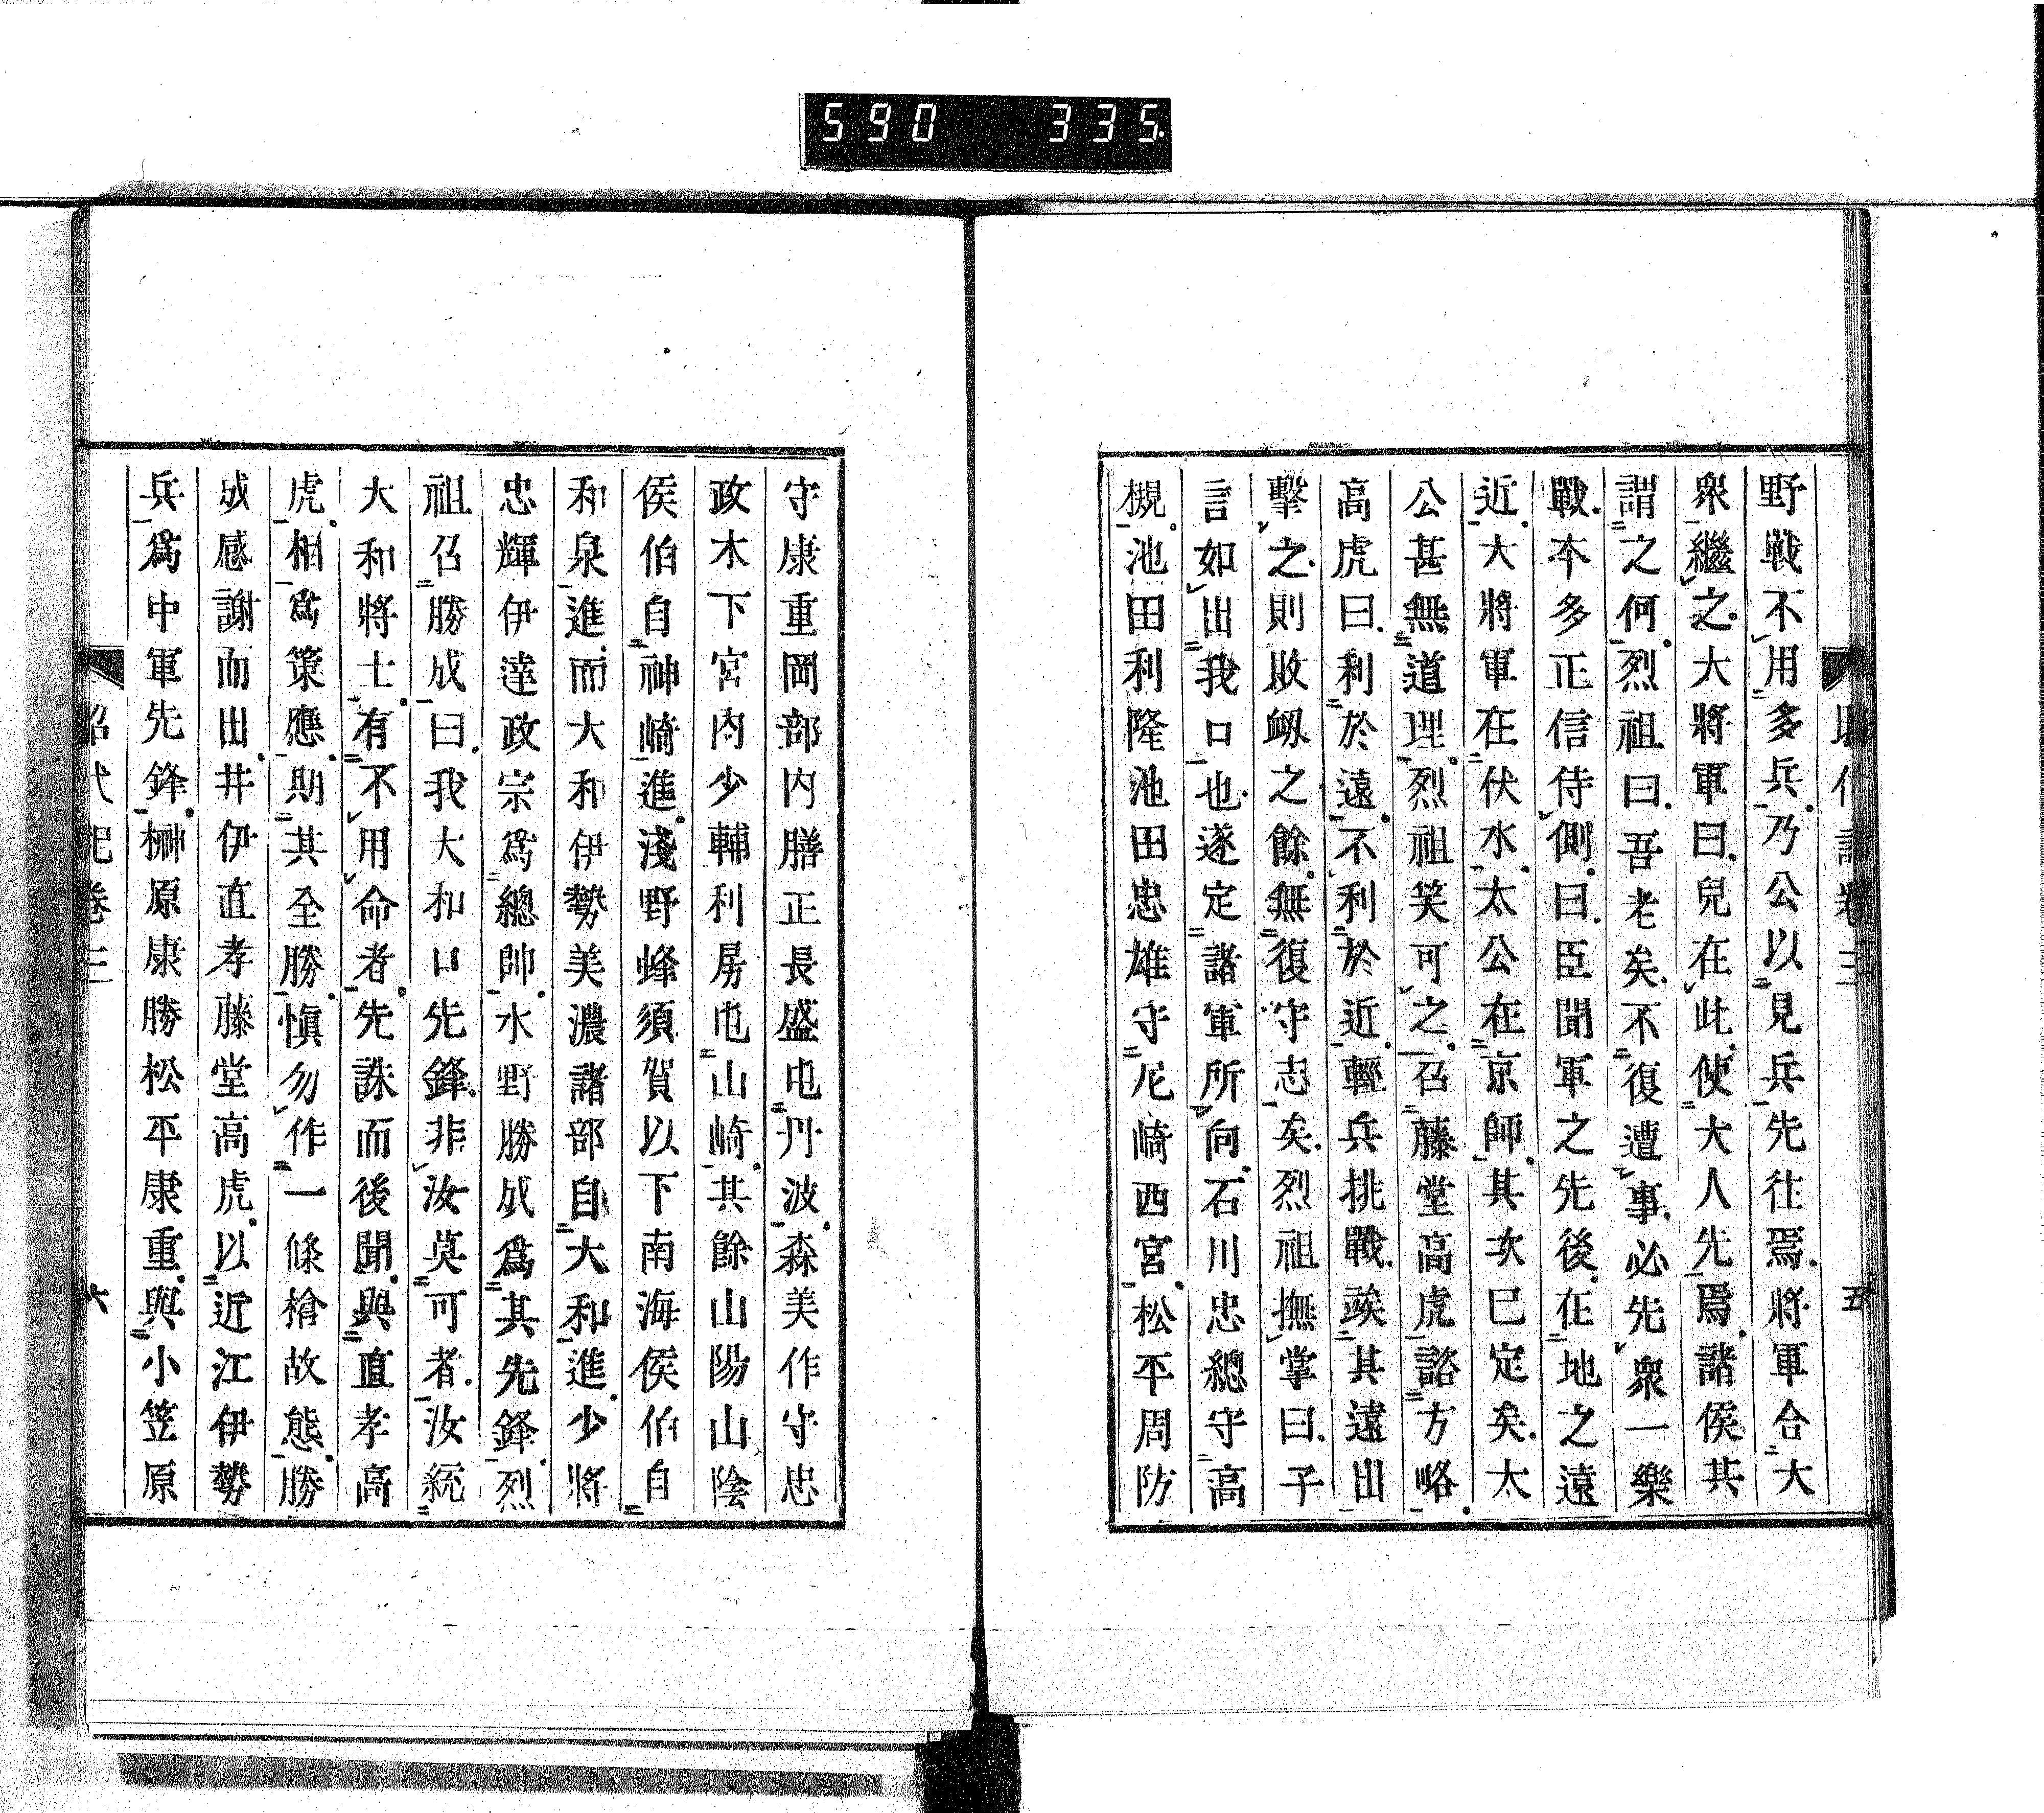 590 335
昭代記卷三 五
野戰不用多兵乃公以見兵先往焉將軍合大
衆繼之大將軍曰兒在此使大人先焉諸侯其
謂之何烈祖曰吾老矣不復遭事必先衆一樂
戰本多正信侍側曰臣聞軍之先後在地之遠
近大將軍在伏水太公在京師其次已定矣太
公甚無道理烈祖笑可之召藤堂高虎諮方略
高虎曰利於遠不利於近輕兵挑戰竢其遠出
擊之則敗衂之餘無復守志矣烈祖撫掌曰子
言如出我口也遂定諸軍所向石川忠總守高
槻池田利隆池田忠雄守尼崎西宮松平周防
守康重岡部内膳正長盛屯丹波森美作守忠
政木下宮内少輔利房屯山崎其餘山陽山陰
侯伯自神崎進淺野蜂須賀以下南海侯伯自
和泉進而大和伊勢美濃諸部自大和進少將
忠輝伊達政宗爲總帥水野勝成爲其先鋒烈
祖召勝成曰我大和口先鋒非汝莫可者汝統
大和將士有不用命者先誅而後聞與直孝高
虎相爲策應期其全勝愼勿作一條槍故態勝
成感謝而出井伊直孝藤堂高虎以近江伊勢
兵爲中軍先鋒榊原康勝松平康重與小笠原
昭代記卷三 六